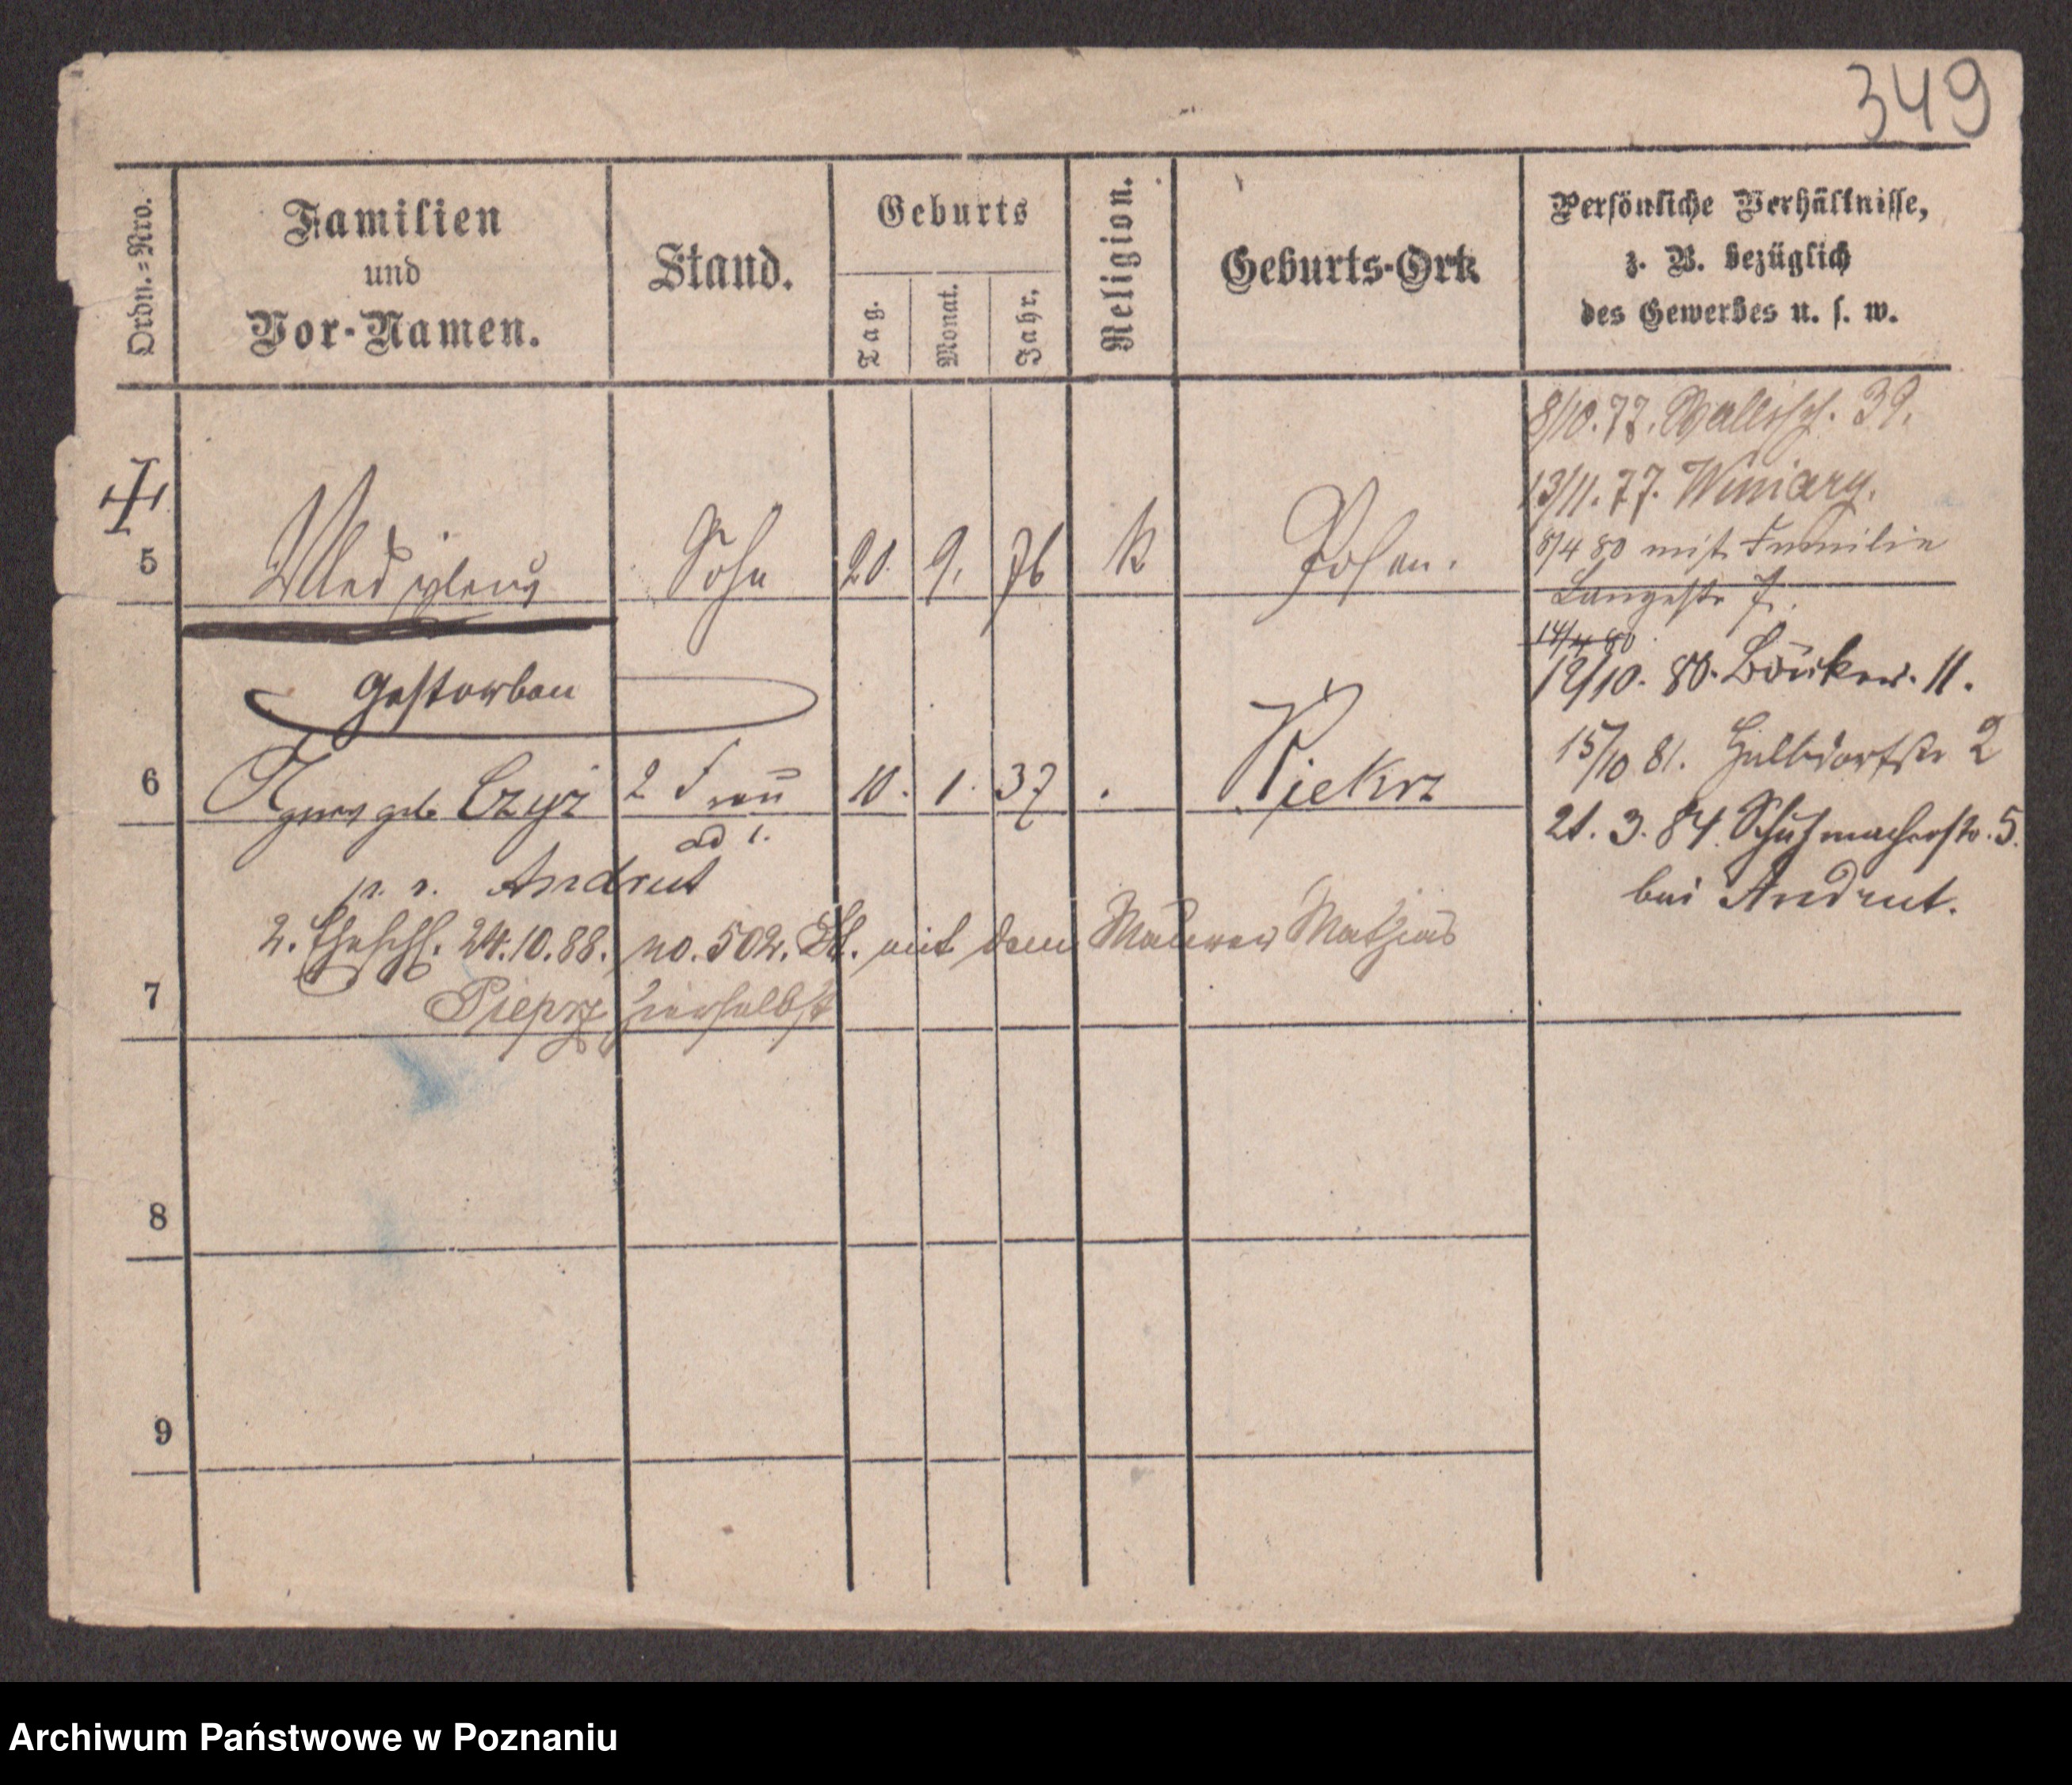 349
Ordn.=Nro.
Familien
und
Vor-Namen.
Stand.
Geburts
Tag.
Monat.
Jahr.
Religion.
Geburts-Ort
Persönliche Verhältnisse,
z. B. bezüglich
des Gewerbes u. s. w.
8/10. 77. Wallisch. 39.
13/11. 77. Winiary.
8/4 80 mit Familie
Langestr 7.
14/4 80
5 Sohn 20. 9. 76 K Posen.
12/10. 80. Bäcker. 11.
gestorben
15/10 81. Halbdorfstr 2
6 Agnes geb. Czyz 2 Frau 10. 1. 37 Kiekrz
ad 1.
21. 3. 84. Schuhmacherstr. 5.
bei Andrut.
p. r. Andrut
2. Eheschl. 24.10.88. no. 502. St. mit dem Maurer Mathias
7 Pieprz hierselbst
8
9
Archiwum Państwowe w Poznaniu